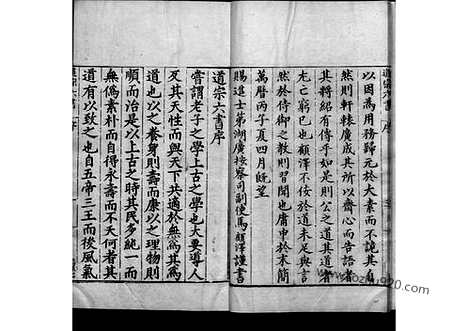 以因為用務歸元於大素而不詭其自
然則軒轅廣成其所以齋心而告語者
其將紹有傳乎如是則公之道其道者
亡窮已也顧澤不佞於道未足與言
然於侍御之教則習聞也庸申於末簡
萬曆丙子夏四月既望
賜進士第湖廣按察司副使馬顧澤謹書
道宗六書序
嘗謂老子之學上古之學也大要道人
反其天性而與天下共適於無為其為
道也以之養身則壽而康以之理物則
順而治是以上古之時其民多純一而
無偽素朴而自得永壽而不夭何者其
道有以致之也自五帝三王而後風氣
道宗六書
序